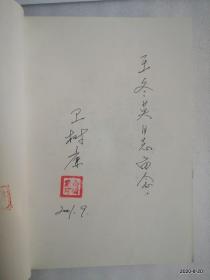 王冬英同志留念、
卫树康
2001.9.
2020-8-20